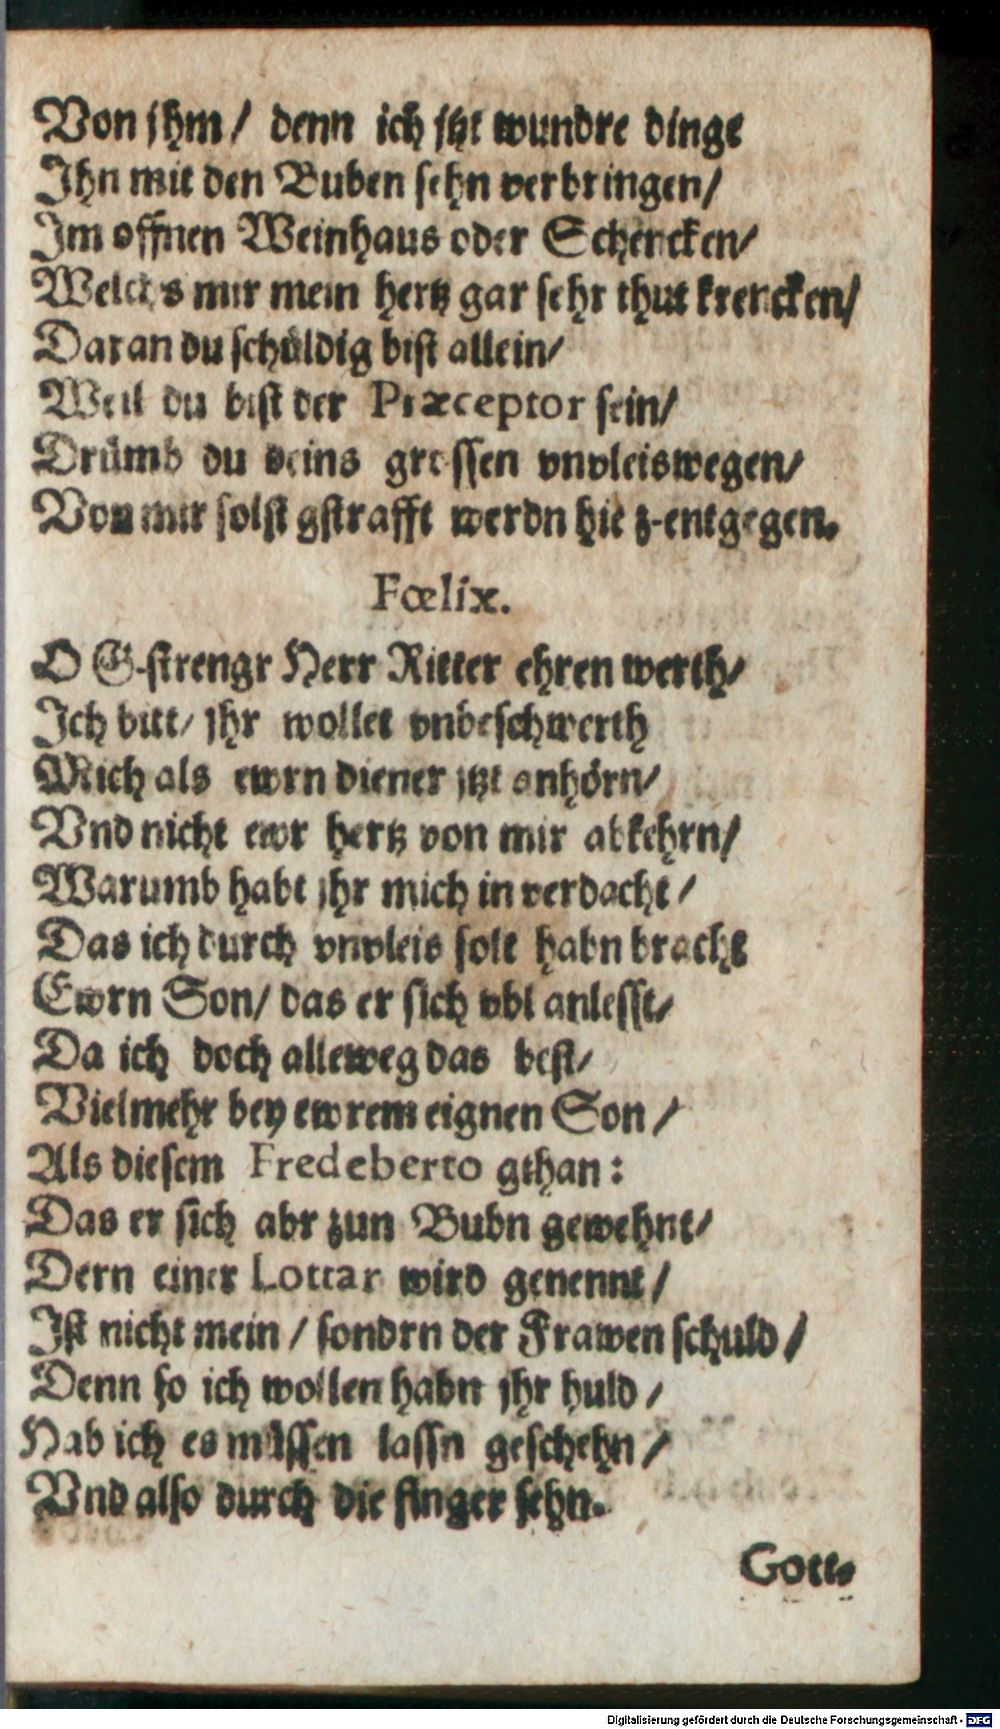 Von jhm/ denn ich jtzt wundre dinge
Ihn mit den Buben sehn verbringen/
Im offnen Weinhaus oder Schencken/
Welchs mir mein hertz gar sehr thut krencken/
Daran du schüldig bist allein/
Weil du bist der Præceptor sein/
Drümb du deins grossen vnvleiswegen/
Von mir solst gstrafft werdn hie z-entgegen.
Fœlix.
O G-strengr Herr Ritter ehren werth/
Ich bitt/ jhr wollet vnbeschwerth
Mich als ewrn diener jtzt anhörn/
Vnd nicht ewr hertz von mir abkehrn/
Warumb habt jhr mich in verdacht/
Das ich durch vnvleis solt habn bracht
Ewrn Son/ das er sich vbl anlesst/
Da ich doch alleweg das best/
Vielmehr bey ewrem eignen Son/
Als diesem Fredeberto gthan:
Das er sich abr zun Bubn gewehnt/
Dern einer Lottar wird genennt/
Ist nicht mein/ sondrn der Frawen schuld/
Denn so ich wollen habn jhr huld/
Hab ich es müssen lassn geschehn/
Vnd also durch die finger sehn.
Gott-
Digitalisierung gefördert durch die Deutsche Forschungsgemeinschaft - DFG